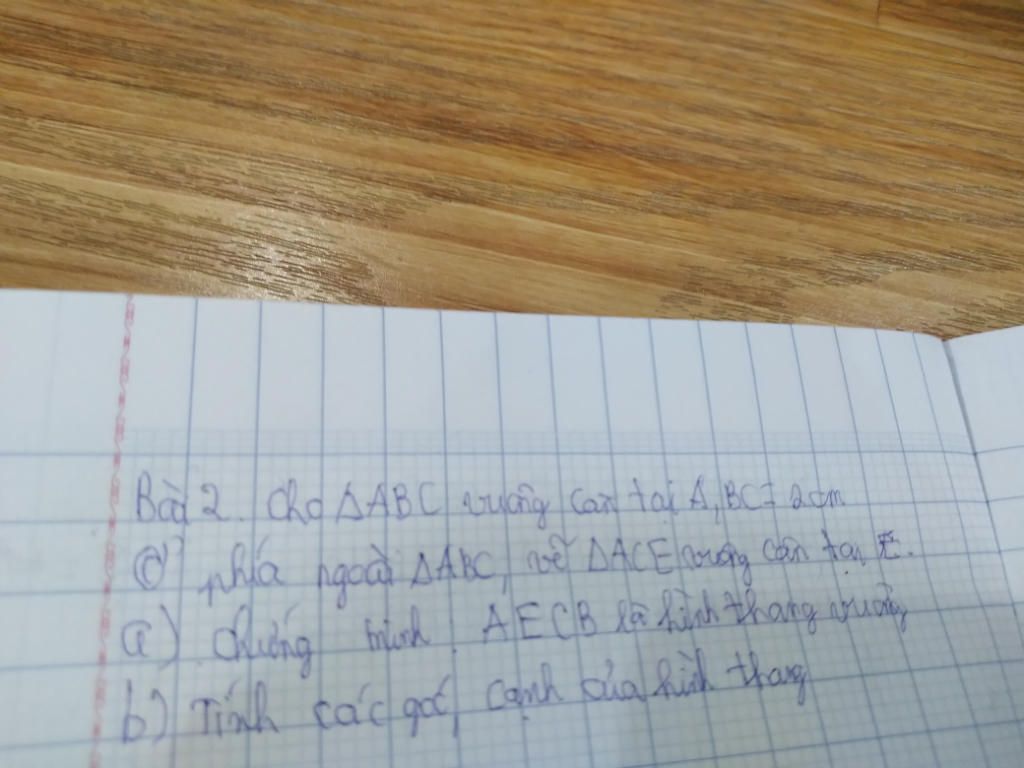 Bài 2. Cho ΔABC vuông cân tại A, BC = 2cm
Ở phía ngoài ΔABC, vẽ ΔACE vuông cân tại E.
a) Chứng minh: AECB là hình thang vuông
b) Tính các góc, cạnh của hình thang